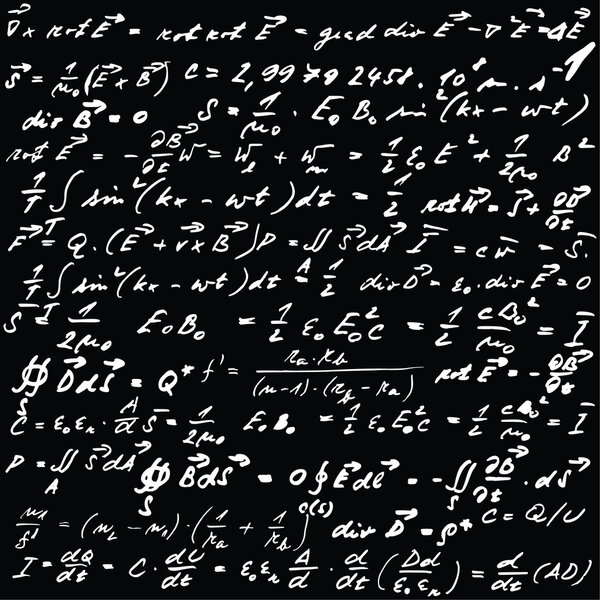 ∇⃗ × rot E⃗ = rot rot E⃗ = grad div E⃗ − ∇² E⃗ = ΔE⃗
S⃗ = 1/μ₀ (E⃗ × B⃗) c = 2,99792458 · 10⁸ m · s⁻¹
div B⃗ = 0 S = 1/μ₀ · E₀ B₀ sin² (kx − wt)
rot E⃗ = − ∂B⃗/∂t W = W_l + W_m = 1/2 ε₀ E² + 1/2μ₀ B²
1/T ∫ sin² (kx − wt) dt = 1/2 rot H⃗ = S⃗ + ∂D⃗/∂t
F⃗ = Q · (E⃗ + v⃗ × B⃗) P = ∬ S⃗ dA⃗ I̅ = c w̅ = S̅ .
1/T ∫ᵀ sin² (kx − wt) dt = 1/2 div D⃗ = ε₀ · div E⃗ = 0
S̅ = I̅ = 1/2μ₀ E₀ B₀ = 1/2 ε₀ E₀² c = 1/2 cB₀²/μ₀ = I̅
∯_S D⃗ dS⃗ = Q* f' = r_a · r_b / (n − 1) · (r_b − r_a) rot E⃗ = − ∂B⃗/∂t
C = ε₀ ε_r · A/d S̅ = 1/2μ₀ E₀ B₀ = 1/2 ε₀ E₀² c = 1/2 cB₀²/μ₀ = I̅
P = ∬_A S⃗ dA⃗ ∯_S B⃗ dS⃗ = 0 ∮ E⃗ dl⃗ = − ∬_S ∂B⃗/∂t · dS⃗
n₁/f' = (n₂ − n₁) · (1/r_a + 1/r_b) O(S) div D⃗ = ρ* C = Q/U
I = dQ/dt = C · dU/dt = ε₀ ε_r A/d · d/dt (Dd/ε₀ ε_r) = d/dt (AD)